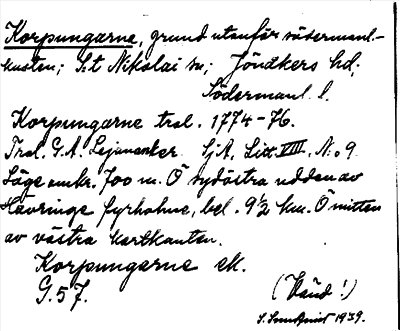 Korpungarne, grund utanför södermanl.-
kusten; S:t Nikolai sn; Jönåkers hd;
Södermanl. l.
Korpungarne tral. 1774-76.
Tral. G.A. Lejonanker SjA, Litt. VIII, No 9
Läge omkr. 700 m. Ö sydöstra udden av
Hävringe fyrholme, bel. 9 1/2 km. Ö mitten
av västra kartkanten.
Korpungarne ek.
G. 57.
(Vänd!)
S. Sundqvist 1939.